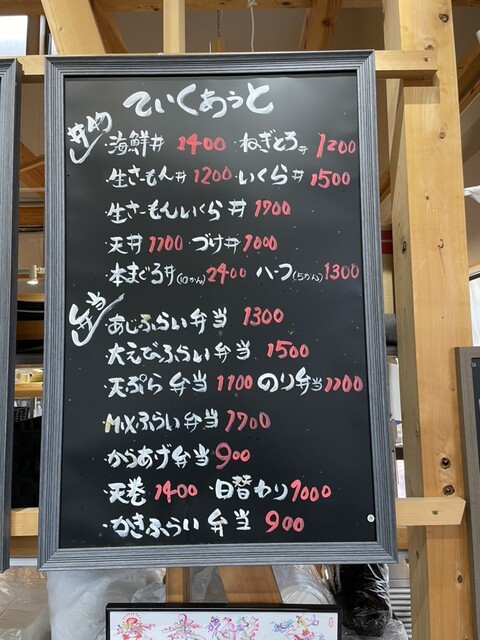 ていくあうと
丼物
・海鮮丼 1400 ・ねぎとろ丼 1200
・生さーもん丼 1200 ・いくら丼 1500
・生さーもんいくら丼 1700
・天丼 1100 づけ丼 1000
・本まぐろ丼(10かん) 2400 ハーフ(5かん) 1300
弁当
・あじふらい弁当 1300
・大えびふらい弁当 1500
・天ぷら弁当 1100 のり弁当 1100
・MIXふらい弁当 1700
・からあげ弁当 900
・天巻 1400 ・日替わり 1000
・かきふらい弁当 900